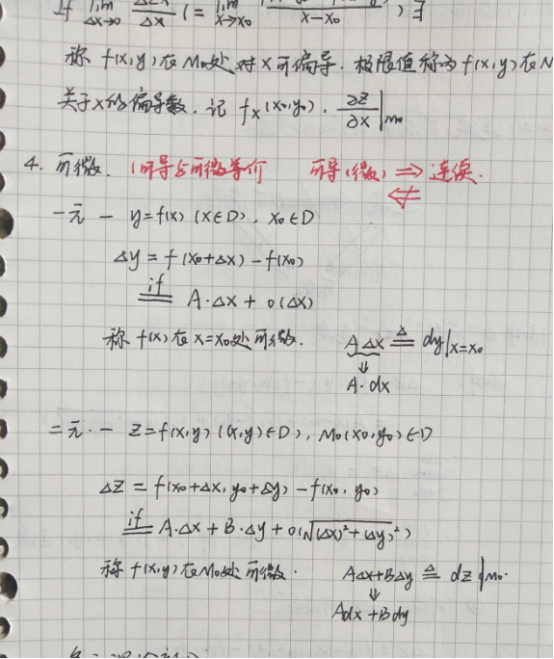 lim Δx→0 Δx (= lim x→x₀ x-x₀ ) ∃
称 f(x,y)在M₀处对x可偏导.极限值称为f(x,y)在M
关于x的偏导数.记 fx(x₀,y₀). ∂z/∂x|M₀
4. 可微. (可导与可微等价 可导(微) ⇒ 连续.
⇍
一元 - y=f(x) (x∈D), x₀∈D
Δy = f(x₀+Δx) - f(x₀)
if == A·Δx + o(Δx)
称 f(x)在x=x₀处可微. AΔx ≜ dy|x=x₀
⇓
A·dx
二元.- z=f(x,y) (x,y)∈D), M₀(x₀,y₀)∈D
Δz = f(x₀+Δx, y₀+Δy) - f(x₀, y₀)
if == A·Δx + B·Δy + o(√(Δx)²+(Δy)²)
称 f(x,y)在M₀处可微. AΔx+BΔy ≜ dz|M₀.
⇓
Adx+Bdy